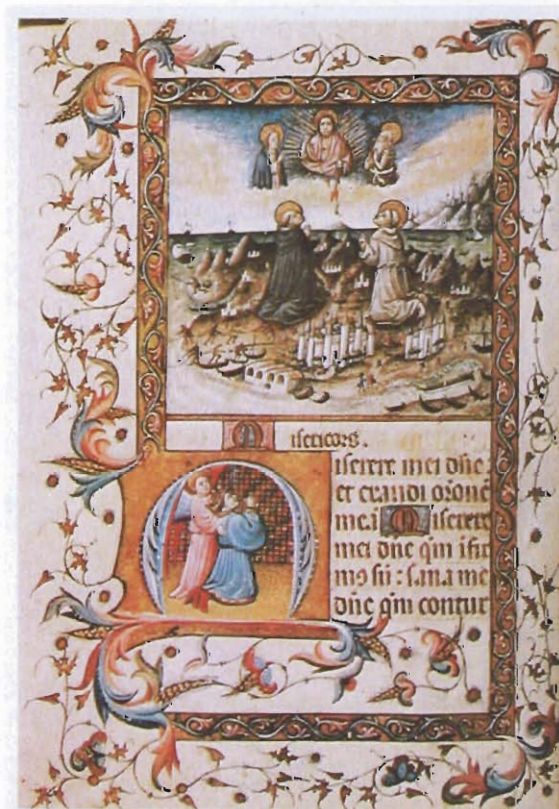 Misericors.
Miserere mei dñe:
et exaudi orõne
mea Miserere
mei dñe qm̃ ifir
mus su : sana me
dñe qm̃ contur